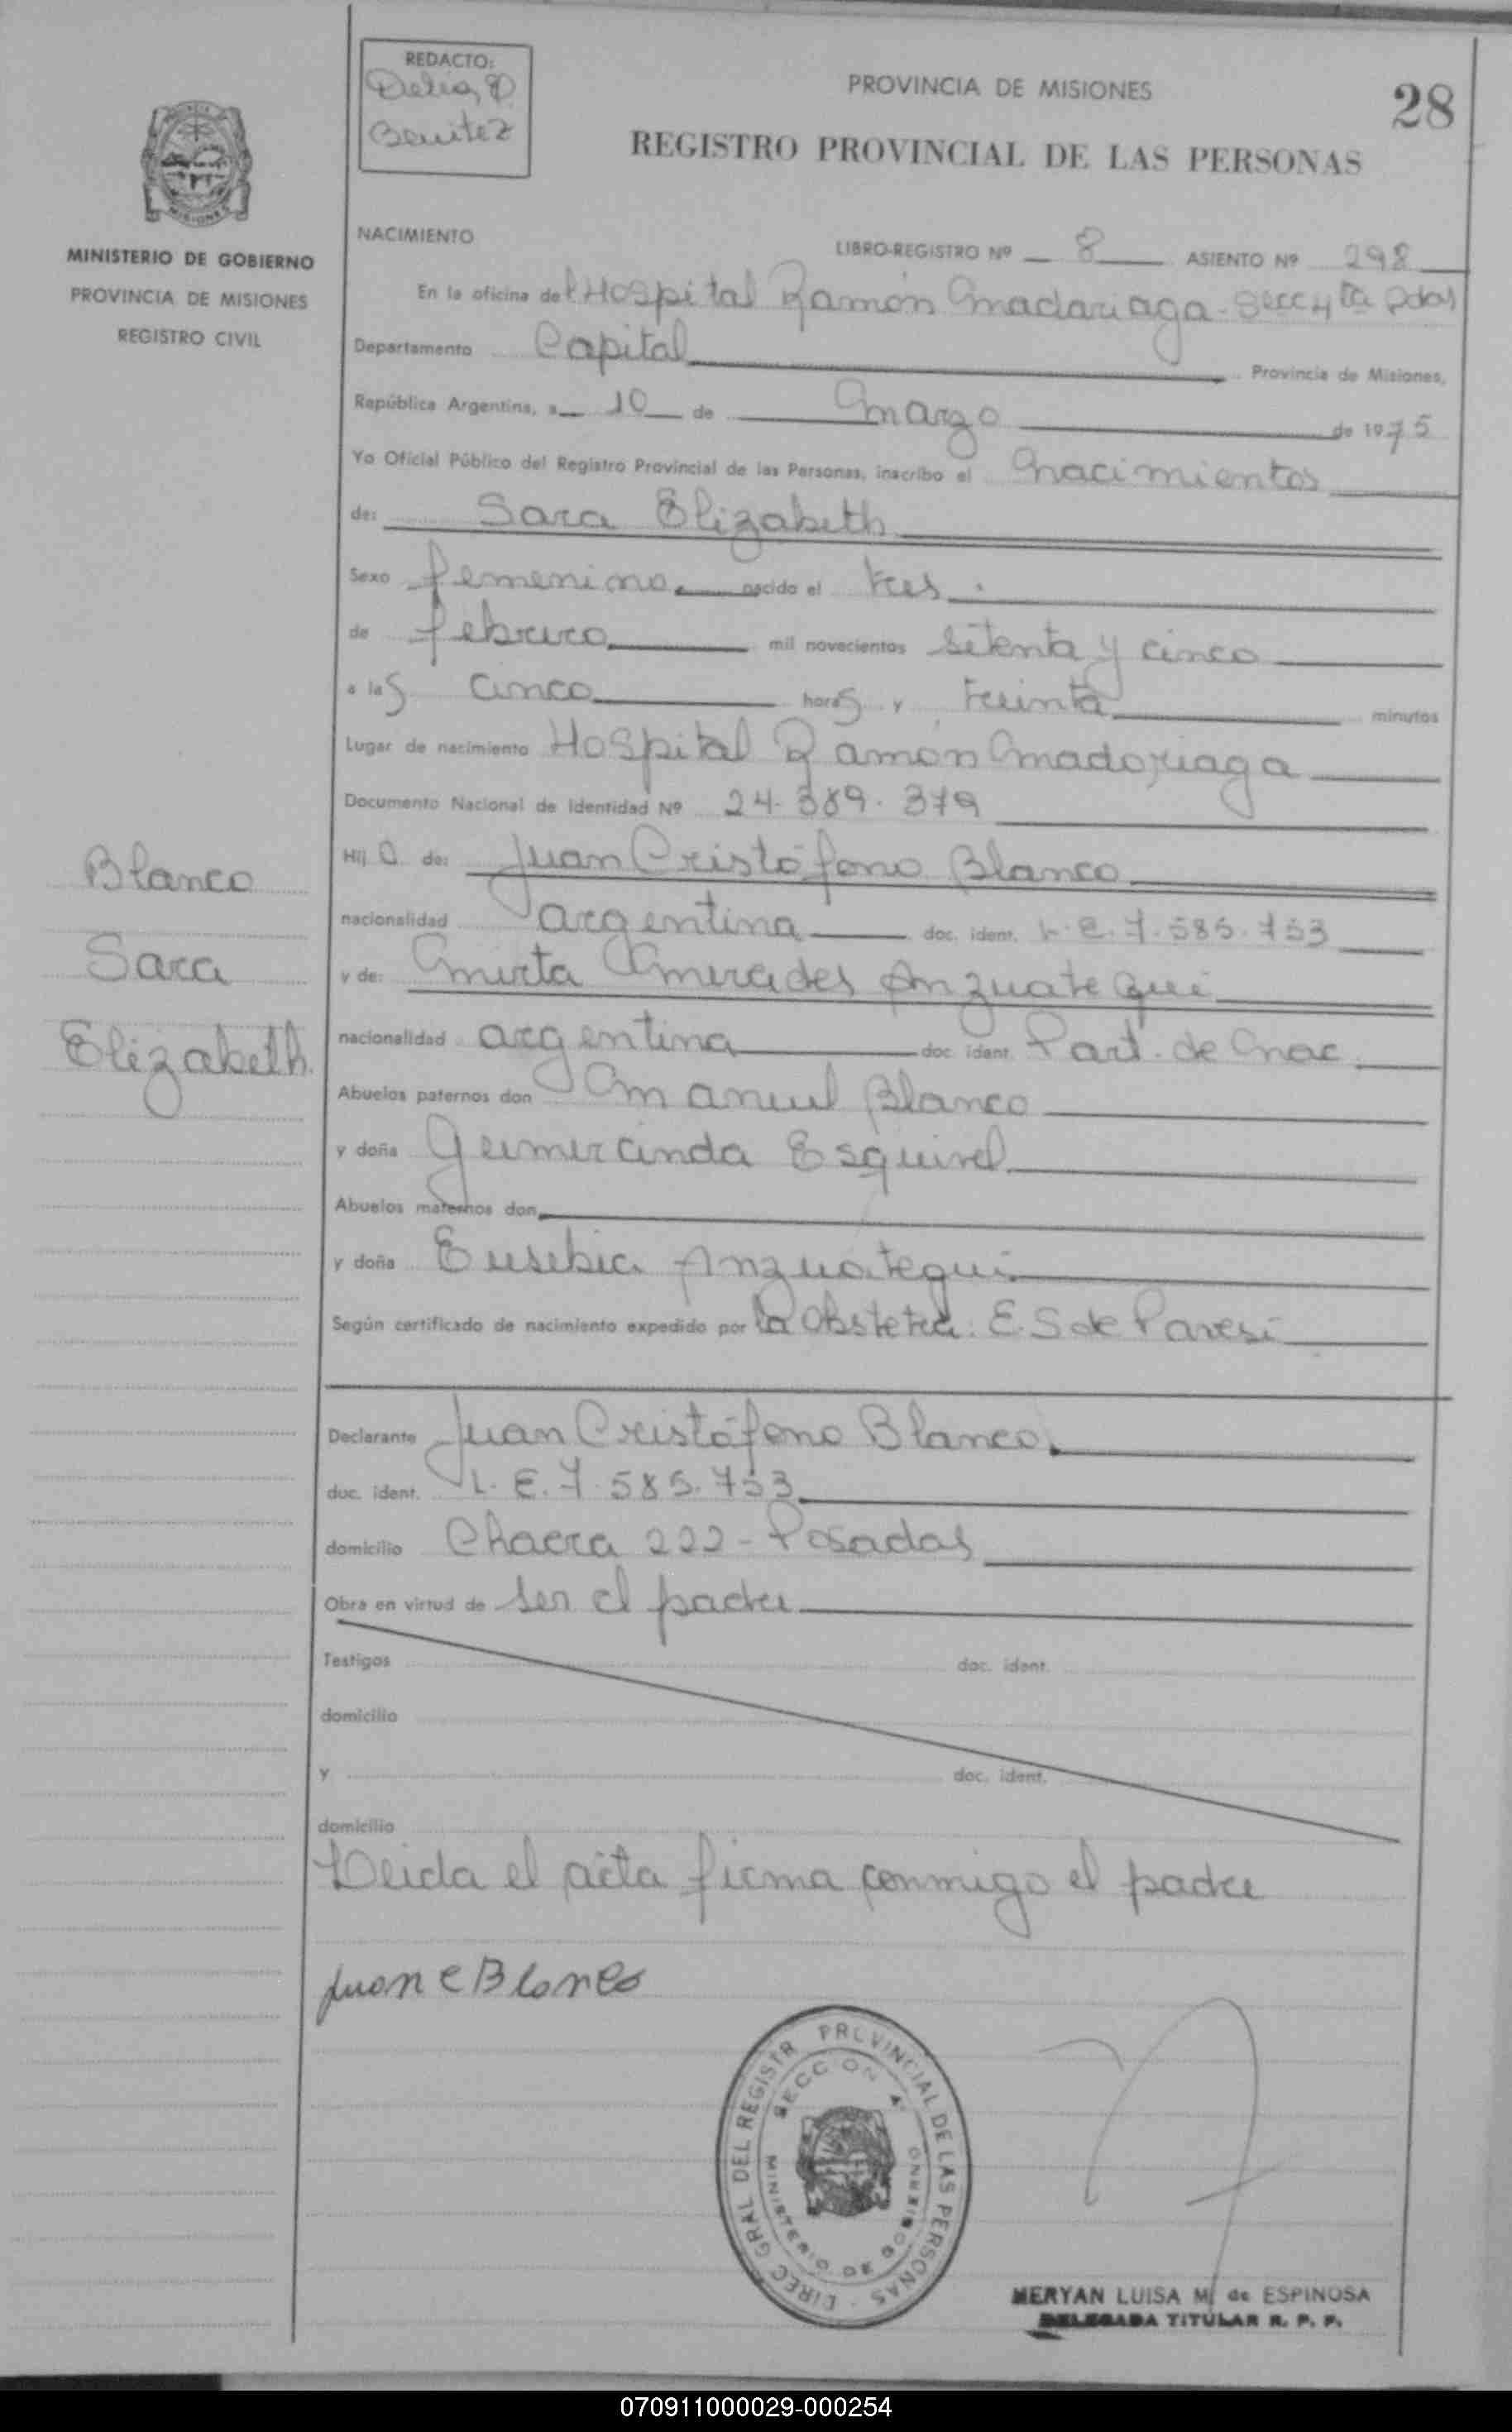 REDACTO:
Delia
Benitez
PROVINCIA DE MISIONES
28
REGISTRO PROVINCIAL DE LAS PERSONAS
MISIONES
MINISTERIO DE GOBIERNO
PROVINCIA DE MISIONES
REGISTRO CIVIL
NACIMIENTO
LIBRO-REGISTRO Nº 8 ASIENTO Nº 298
En la oficina del Hospital Ramón Madariaga - Secc 4ta Pdas
Departamento Capital Provincia de Misiones,
República Argentina, a 10 de marzo de 1975
Yo Oficial Público del Registro Provincial de las Personas, inscribo el nacimientos
de: Sara Elizabeth
Sexo femenino. nacido el tres.
de febrero mil novecientos setenta y cinco
a las cinco horas y treinta minutos
Lugar de nacimiento Hospital Ramón Madariaga
Documento Nacional de Identidad Nº 24.389.379
Blanco
Sara
Elizabeth
Hij a de: Juan Cristófono Blanco
nacionalidad argentina doc. ident. L.E. 7.585.753
y de: Mirta Mercedes Anzuategui
nacionalidad argentina doc. ident. Part. de Nac.
Abuelos paternos don Manuel Blanco
y doña Esquivel
Abuelos maternos don
y doña Eusebia Anzuategui
Según certificado de nacimiento expedido por la Obstetra: E. S de Pavesi
Declarante Juan Cristófono Blanco.
doc. ident. L.E. 7.585.753
domicilio Chacra 222 - Posadas
Obra en virtud de ser el padre
Testigos doc. ident.
domicilio
y doc. ident.
domicilio
Leida el acta firma conmigo el padre
Juan C Blanco
DIREC GRAL DEL REGISTR PROVINCIAL DE LAS PERSONAS
SECCION 4
MINISTERIO DE GOBIERNO
MERYAN LUISA M. de ESPINOSA
DELEGADA TITULAR R. P. P.
070911000029-000254